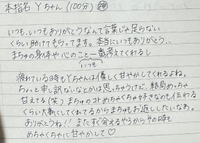 本指名 Yちゃん(100分)
いつも、いつもありがとうなんて言葉じゃ足らない
くらい助けてもらってます。本当にいつもありがとう。
まちゅの身体や心のこと一番考えてくれるし
いつも
疲れている時もYちゃんは優しく甘やかしてくれるよね。
ちょっと申し訳ないなとかは思っちゃうけど、結局めっちゃ
甘えてる(笑) まちゅのコトめちゃくちゃ好きなのも伝わる
くらい大事にしてくれてるからまちゅもお返ししたいなぁ。
ありがとう!! またすぐ会えるやろからその時も
めちゃくちゃに甘やかして♡